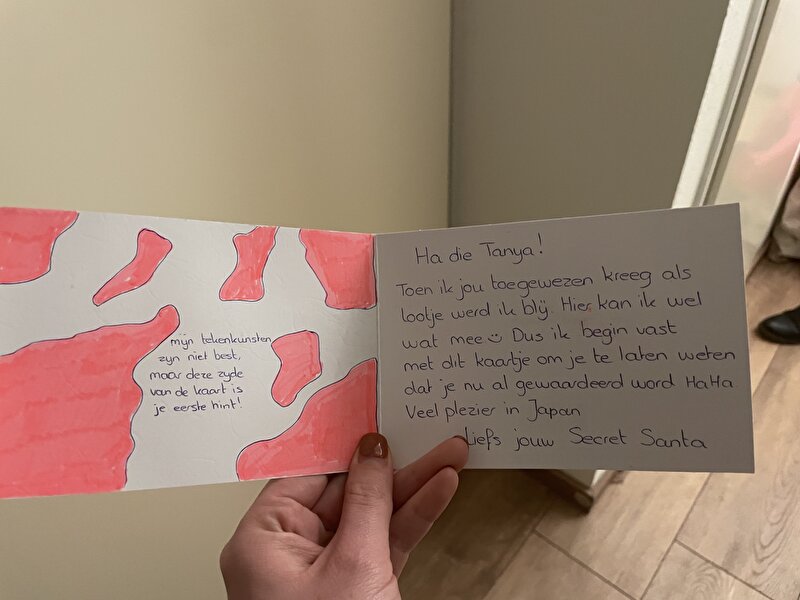 mijn tekenkunsten
zijn niet best,
maar deze zijde
van de kaart is
je eerste hint!
Ha die Tanya!
Toen ik jou toegewezen kreeg als
lootje werd ik blij. Hier kan ik wel
wat mee☺ Dus ik begin vast
met dit kaartje om je te laten weten
dat je nu al gewaardeerd word HaHa.
Veel plezier in Japan
Liefs jouw Secret Santa